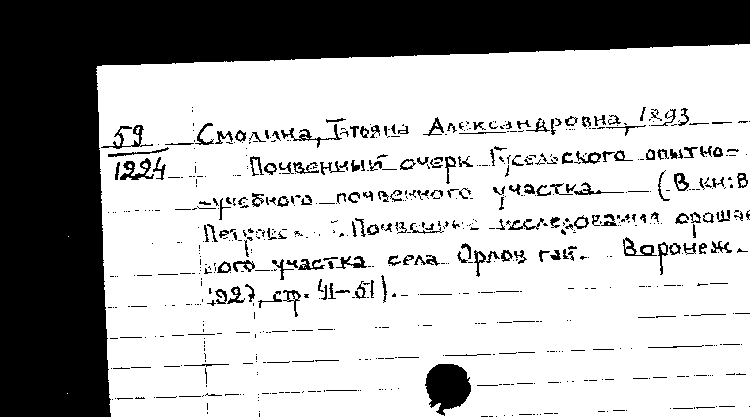 59
1224
Смолина, Татьяна Александровна, 1893
Почвенный очерк Гусельского опытно-
-учебного почвенного участка. (В кн: В
Почвенные исследования ороша
ного участка села Орлов гай. Воронеж.
1927, стр. 41-51).